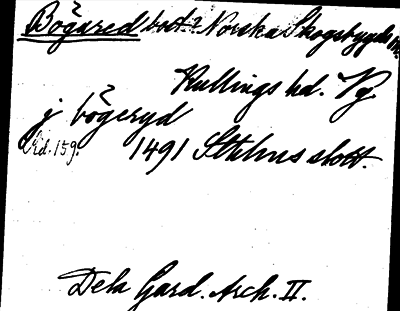 Bögared bort? Norska Skogsbygde
Kullings hd. Vg
j bögeryd
Lid. 159. 1491 Sthlms slott.
Dela Gard. Arch. II.